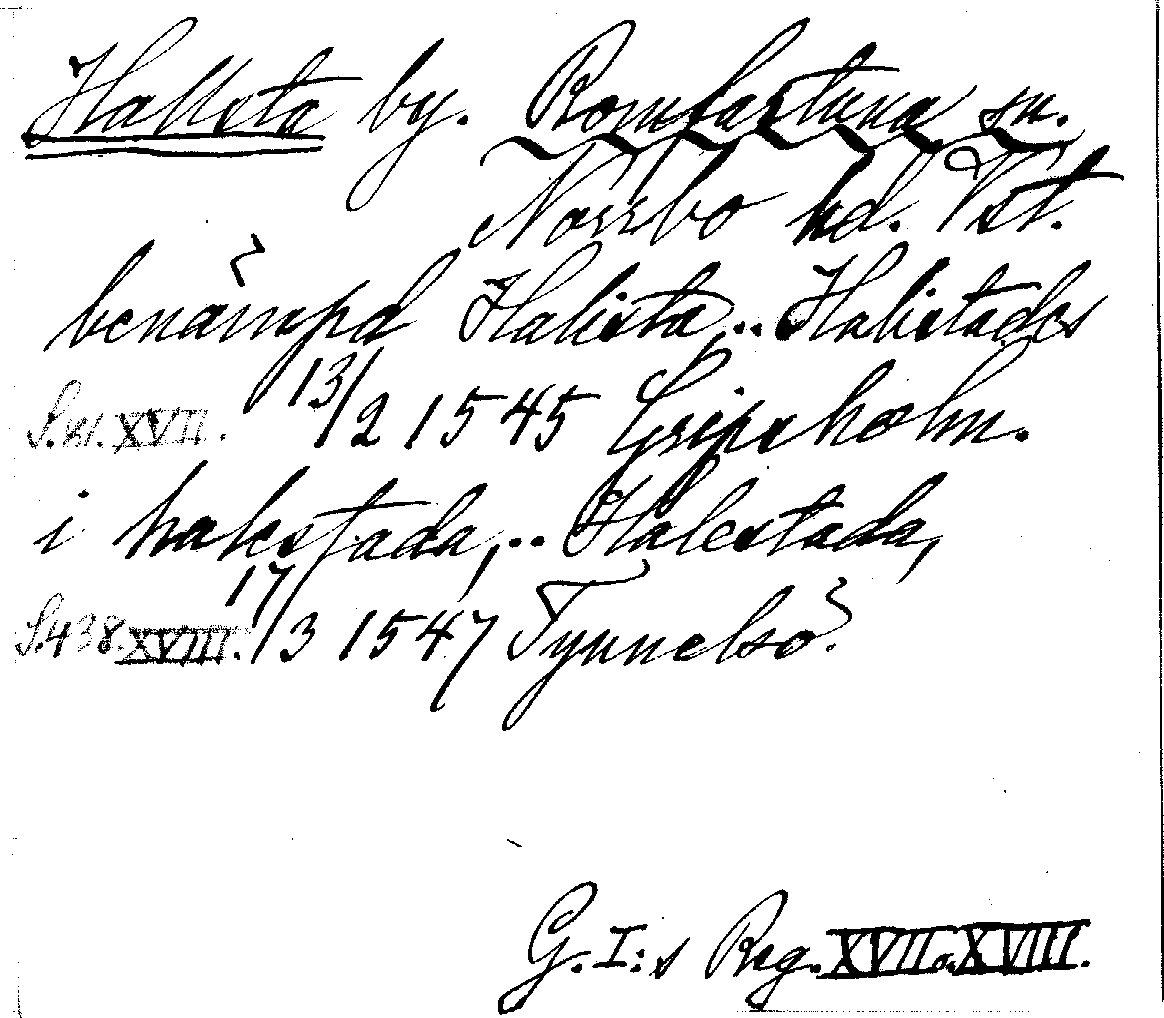 Hallsta by. Romfartuna sn.
Norrbo hd. Vstl.
benämpd Halista,.. Halistades
XVII. 13/2 1545 Gripsholm.
i halestada,.. Halestada,
S. 438. XVIII. 17/3 1547 Tynnelsö.
G. I:s Reg. XVII o. XVIII.